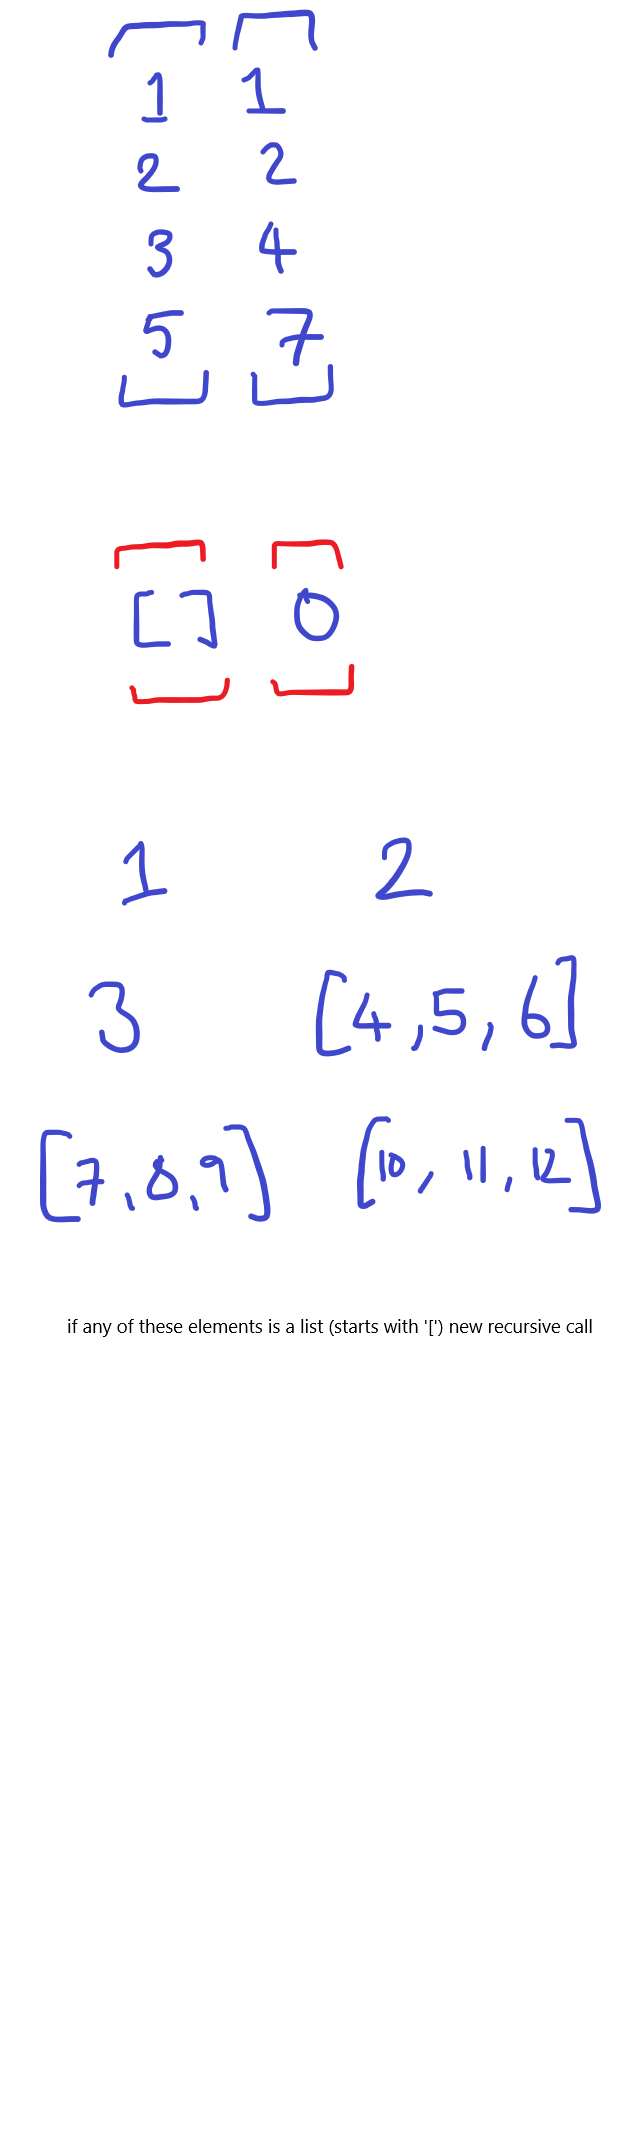 1 1
2 2
3 4
5 7
[] 0
1 2
3 [4,5,6]
[7,8,9] [10,11,12]
if any of these elements is a list (starts with '[') new recursive call